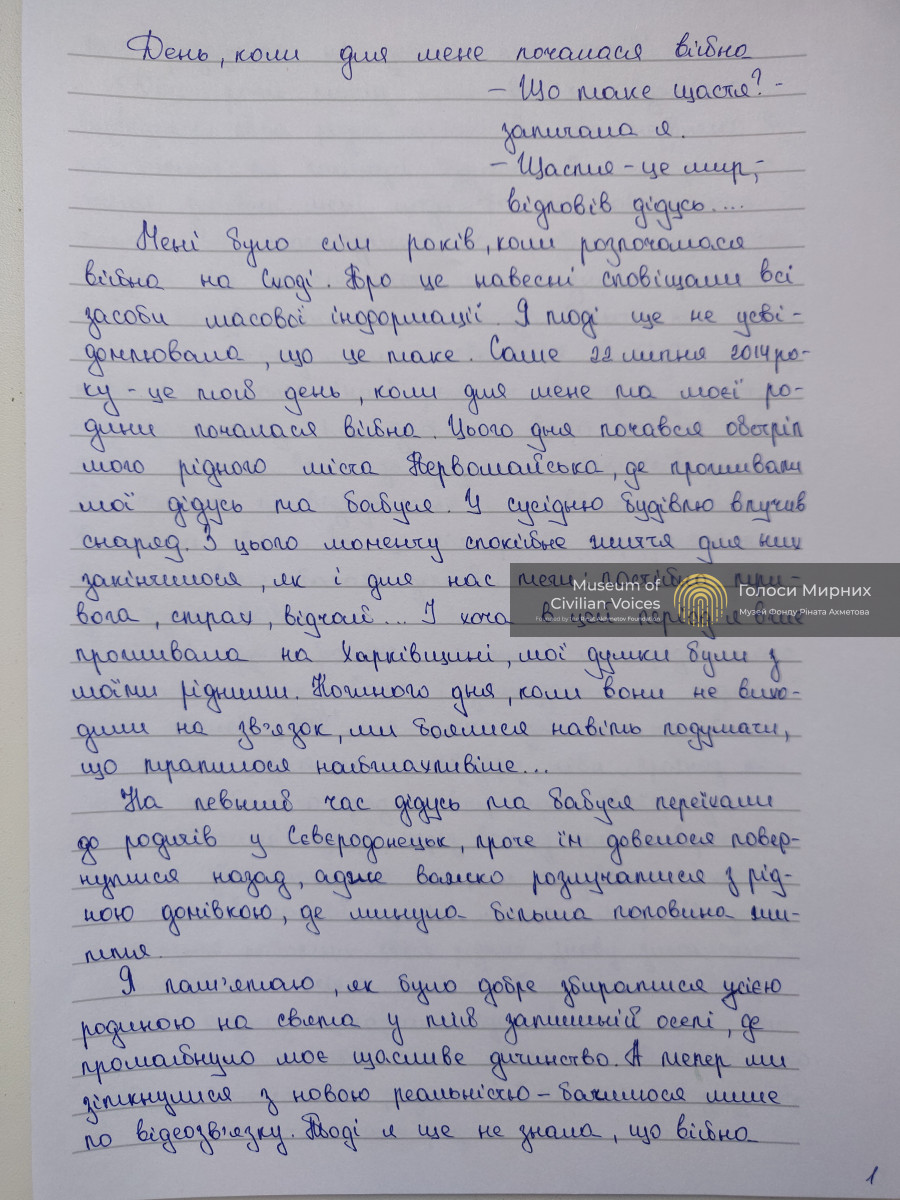 День, коли для мене почалася війна
– Що таке щастя? -
запитала я.
– Щастя – це мир, -
відповів дідусь....
Мені було сім років, коли розпочалася
війна на Сході. Про це навесні сповіщали всі
засоби масової інформації. Я тоді ще не усві-
домлювала, що це таке. Саме 22 липня 2014 ро-
ку – це той день, коли для мене та моєї ро-
дини почалася війна. Цього дня почався обстріл
мого рідного міста Первомайська, де проживали
мої дідусь та бабуся. У сусідню будівлю влучив
снаряд. З цього моменту спокійне життя для них
закінчилося, як і для нас
Museum of
Civilian Voices
Голоси Мирних
Музей Фонду Ріната Ахметова
вога, страх, відчай... І хоча
проживала на Харківщині, мої думки були з
моїми рідними. Кожного дня, коли вони не вихо-
дили на зв'язок, ми боялися навіть подумати,
що трапилося найжахливіше...
На певний час дідусь та бабуся переїхали
до родичів у Сєвєродонецьк, проте їм довелося повер-
нутися назад, адже важко розлучатися з рід-
ною домівкою, де минула більша половина жи-
ття.
Я пам'ятаю, як було добре збиратися усією
родиною на свята у тій затишній оселі, де
промайнуло моє щасливе дитинство. А тепер ми
зіткнулися з новою реальністю – бачимося лише
по відеозв'язку. Тоді я ще не знала, що війна
1